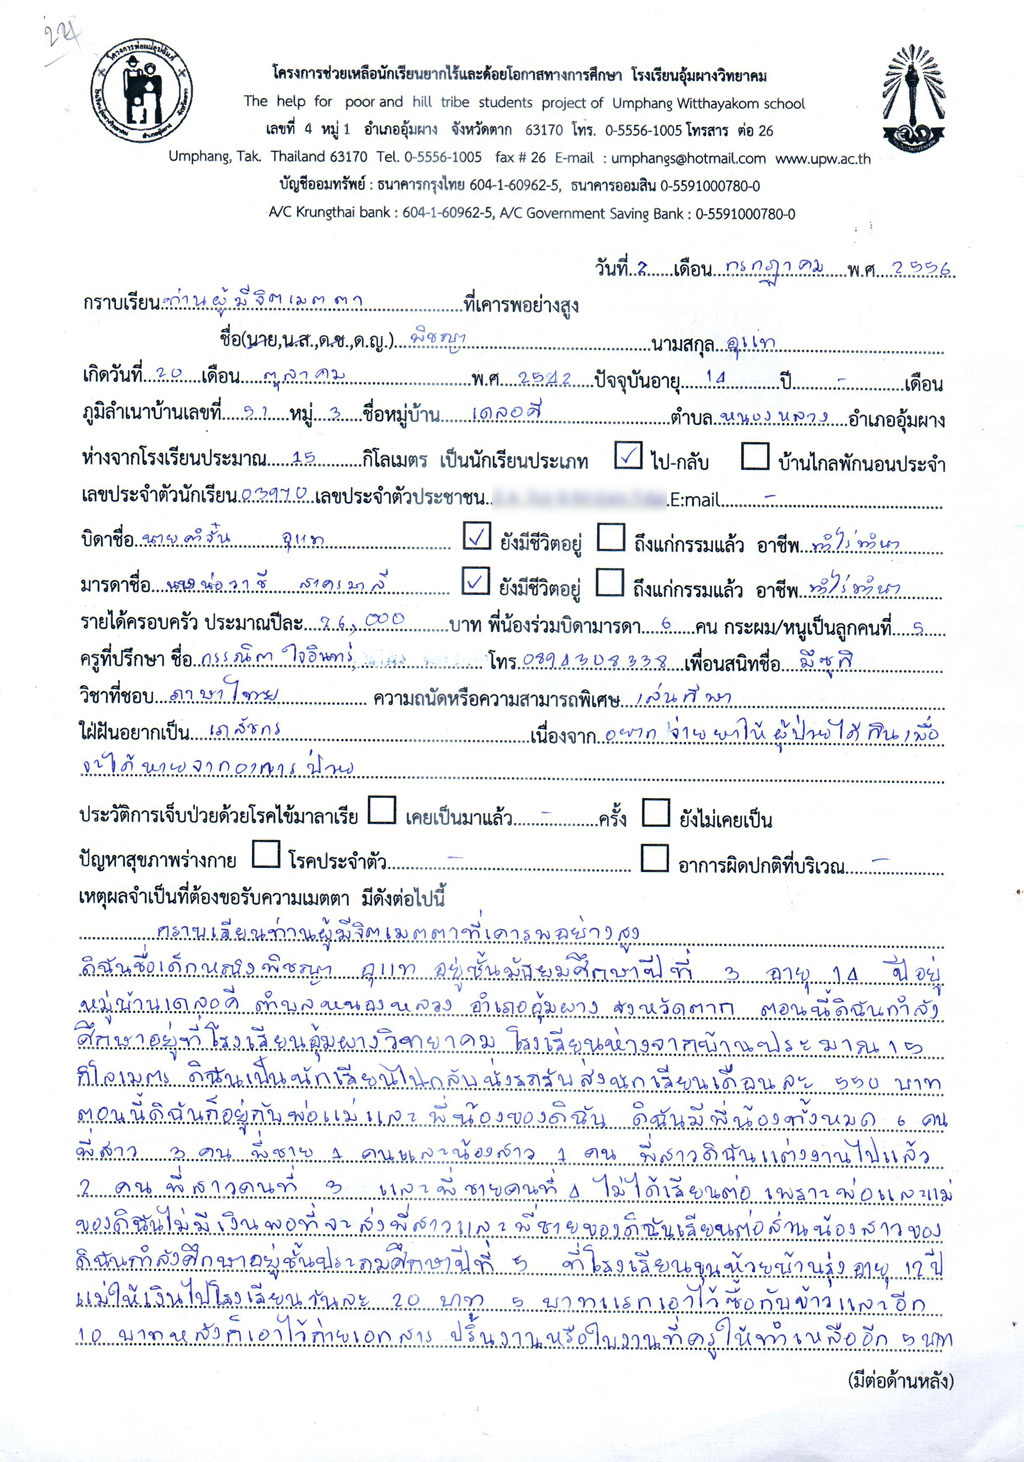 224
โครงการช่วยเหลือนักเรียนยากไร้และด้อยโอกาสทางการศึกษา โรงเรียนอุ้มผางวิทยาคม
The help for poor and hill tribe students project of Umphang Witthayakom school
เลขที่ 4 หมู่ 1 อำเภออุ้มผาง จังหวัดตาก 63170 โทร. 0-5556-1005 โทรสาร ต่อ 26
Umphang, Tak. Thailand 63170 Tel. 0-5556-1005 fax # 26 E-mail : umphangs@hotmail.com www.upw.ac.th
บัญชีออมทรัพย์ : ธนาคารกรุงไทย 604-1-60962-5, ธนาคารออมสิน 0-5591000780-0
A/C Krungthai bank : 604-1-60962-5, A/C Government Saving Bank : 0-5591000780-0
วันที่ 2 เดือน กรกฎาคม พ.ศ. 2556
กราบเรียน ท่านผู้มีจิตเมตตา ที่เคารพอย่างสูง
ชื่อ(นาย,น.ส.,ด.ช.,ด.ญ.) พิชญา นามสกุล อุแท
เกิดวันที่ 20 เดือน ตุลาคม พ.ศ. 2542 ปัจจุบันอายุ 14 ปี - เดือน
ภูมิลำเนาบ้านเลขที่ 51 หมู่ 3 ชื่อหมู่บ้าน เดลอคี ตำบล หนองหลวง อำเภออุ้มผาง
ห่างจากโรงเรียนประมาณ 15 กิโลเมตร เป็นนักเรียนประเภท ✓ ไป-กลับ บ้านไกลพักนอนประจำ
เลขประจำตัวนักเรียน 03970 เลขประจำตัวประชาชน E:mail -
บิดาชื่อ นาย อุแท ✓ ยังมีชีวิตอยู่ ถึงแก่กรรมแล้ว อาชีพ ทำไร่ทำนา
มารดาชื่อ นางน่อวาซี ✓ ยังมีชีวิตอยู่ ถึงแก่กรรมแล้ว อาชีพ ทำไร่ทำนา
รายได้ครอบครัว ประมาณปีละ 26,000 บาท พี่น้องร่วมบิดามารดา 6 คน กระผม/หนูเป็นลูกคนที่ 5
ครูที่ปรึกษา ชื่อ กรรณิกา ใจอินทร์ โทร. 0894308338 เพื่อนสนิทชื่อ มึซุคิ
วิชาที่ชอบ ภาษาไทย ความถนัดหรือความสามารถพิเศษ เล่นกีฬา
ใฝ่ฝันอยากเป็น เภสัชกร เนื่องจาก อยากจ่ายยาให้ผู้ป่วยได้กินเพื่อ
จะได้หายจากอาการป่วย
ประวัติการเจ็บป่วยด้วยโรคไข้มาลาเรีย เคยเป็นมาแล้ว - ครั้ง ยังไม่เคยเป็น
ปัญหาสุขภาพร่างกาย โรคประจำตัว - อาการผิดปกติที่บริเวณ -
เหตุผลจำเป็นที่ต้องขอรับความเมตตา มีดังต่อไปนี้
กราบเรียนท่านผู้มีจิตเมตตาที่เคารพอย่างสูง
ดิฉันชื่อเด็กหญิงพิชญา อุแท อยู่ชั้นมัธยมศึกษาปีที่ 3 อายุ 14 ปีอยู่
หมู่บ้านเดลอคี ตำบลหนองหลวง อำเภออุ้มผาง จังหวัดตาก ตอนนี้ดิฉันกำลัง
ศึกษาอยู่ที่โรงเรียนอุ้มผางวิทยาคม โรงเรียนห่างจากบ้านประมาณ 15
กิโลเมตร ดิฉันเป็นนักเรียนไปกลับนั่งรถรับส่งนักเรียนเดือนละ 550 บาท
ตอนนี้ดิฉันก็อยู่กับพ่อแม่และพี่น้องของดิฉัน ดิฉันมีพี่น้องทั้งหมด 6 คน
พี่สาว 3 คน พี่ชาย 1 คนและน้องสาว 1 คน พี่สาวดิฉันแต่งงานไปแล้ว
2 คน พี่สาวคนที่ 3 และพี่ชายคนที่ 4 ไม่ได้เรียนต่อ เพราะพ่อและแม่
ของดิฉันไม่มีเงินพอที่จะส่งพี่สาวและพี่ชายของดิฉันเรียนต่อส่วนน้องสาวของ
ดิฉันกำลังศึกษาอยู่ชั้นประถมศึกษาปีที่ 5 ที่โรงเรียนขุนห้วยบ้านรุ่ง อายุ 12 ปี
แม่ให้เงินไปโรงเรียนวันละ 20 บาท 5 บาทแรกเอาไว้ซื้อกับข้าวและอีก
10 บาทหลังก็เอาไว้ถ่ายเอกสาร ปริ้นงานหรือใบงานที่ครูให้ทำเหลืออีก 5 บาท
(มีต่อด้านหลัง)